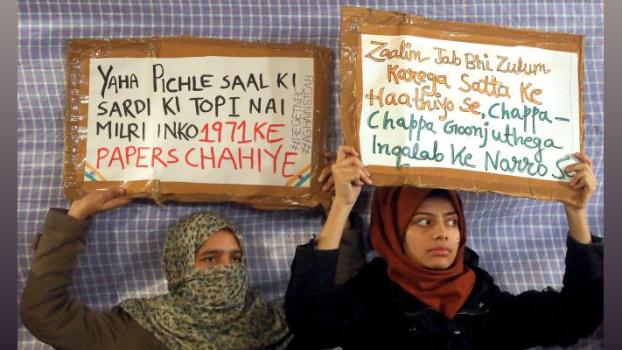 YAHA PICHLE SAAL KI
SARDI KI TOPI NAI
MILRI INKO 1971 KE
PAPERS CHAHIYE
Zaalim Jab Bhi Zulum
Karega Satta Ke
Haathiyo Se, Chappa-
Chappa Goonj uthega
Inqalab Ke Narro Se